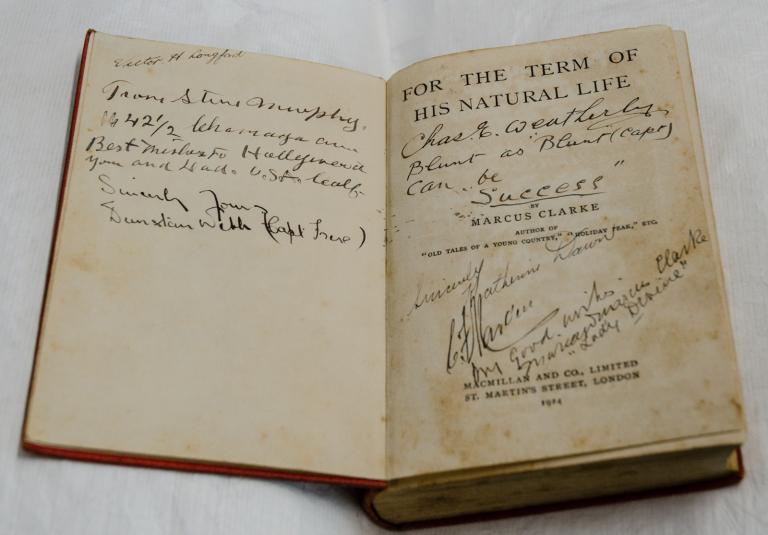 Victor H Longford
From Steve Murphy.
1642 1/2
Best wishes to Hollywood
you and Lads. U.S. Calif.
Sincerely Yours
Dunstan Webb (Capt Frere)
FOR THE TERM OF
HIS NATURAL LIFE
Chas. E. Weatherby
Blunt as "Blunt" (Capt)
can be
"Success"
BY
MARCUS CLARKE
AUTHOR OF
"OLD TALES OF A YOUNG COUNTRY," "HOLIDAY PEAK," ETC.
Sincerely
Katherine Dawn
My Good wishes.
Marion Marcus Clarke
"Lady Devine"
MACMILLAN AND CO., LIMITED
ST. MARTIN'S STREET, LONDON
1924